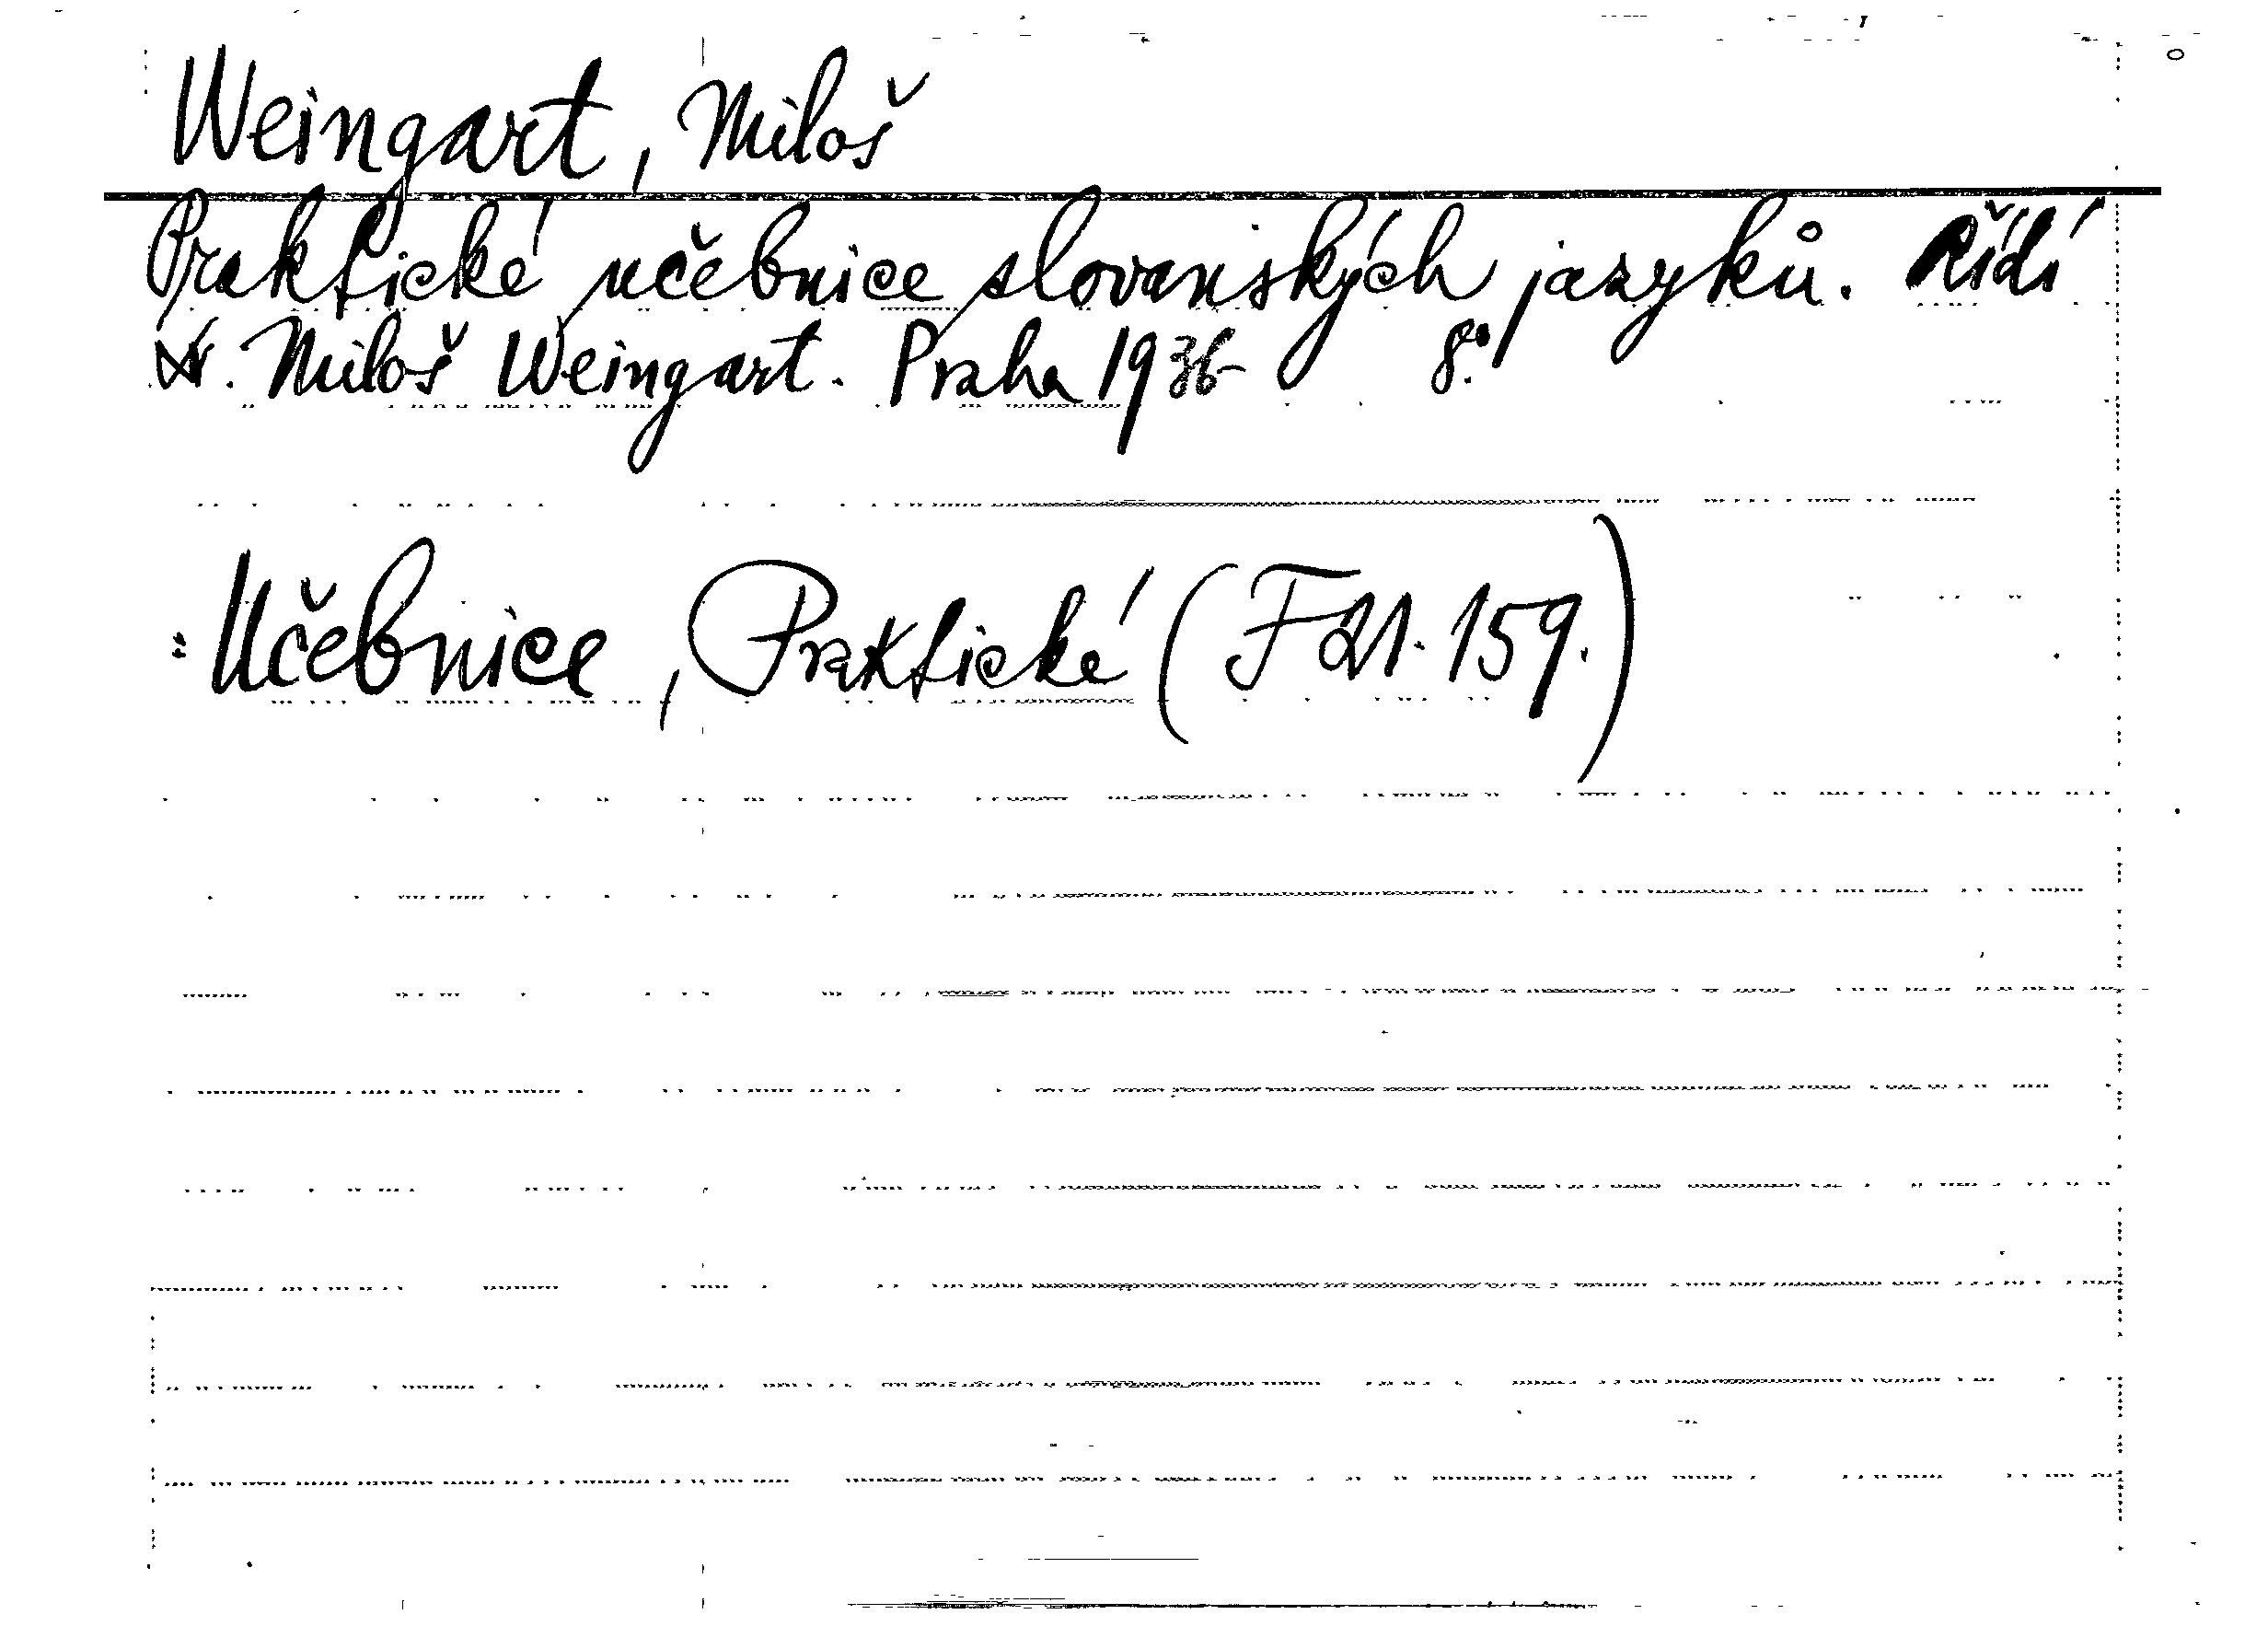 Weingart, Miloš
Praktické učebnice slovanských jazyků. Řídí
Miloš Weingart. Praha 1936- 8°.
: Učebnice, Praktické (F 21.159.)